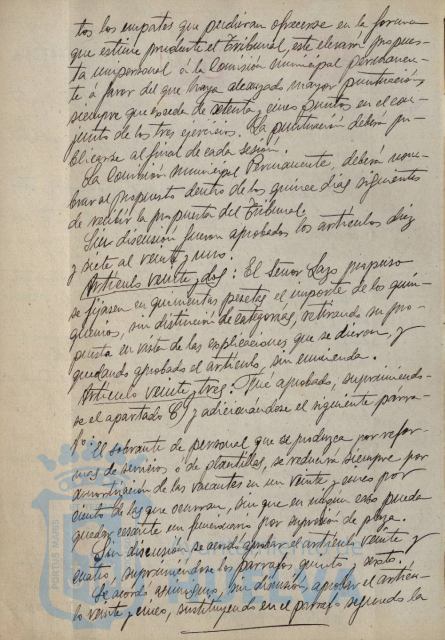 tos los empates que pudieran ofrecerse en la forma
que estime prudente el Tribunal, este elevará propues-
ta unipersonal á la Comisión municipal permanen-
te á favor del que haya alcanzado mayor puntuación,
siempre que exceda de setenta y cinco puntos en el con-
junto de los tres ejercicios. La puntuación deberá pu-
blicarse al final de cada sesión.
La Comisión Municipal Permanente, deberá nom-
brar al propuesto dentro de los quince días siguientes
de recibir la propuesta del Tribunal.
Sin discusión fueron aprobados los artículos diez
y siete al veinte y uno.
Artículo veinte y dos: El señor Lazo propuso
se fijasen en quinientas pesetas el importe de los quin-
quenios, sin distinción de categorías, retirando su pro-
puesta en vista de las explicaciones que se dieron, y
quedando aprobado el artículo, sin enmienda.
Artículo veinte y tres: Fué aprobado, suprimiendo-
se el apartado C y adicionándose el siguiente parra-
fo:
El sobrante de personal que se produzca por refor-
mas de servicios ó de plantillas, se reducirá siempre por
amortización de las vacantes en un veinte y cinco por
ciento de las que ocurran, sin que en ningun caso pueda
quedar cesante un funcionario por supresión de plaza.
Sin discusión se acordó aprobar el artículo veinte y
cuatro, suprimiéndose los parrafos quinto y sexto.
Se acordó, asimismo, sin discusión, aprobar el artícu-
lo veinte y cinco, sustituyendo en el parrafo segundo la
PORTUS MARIS